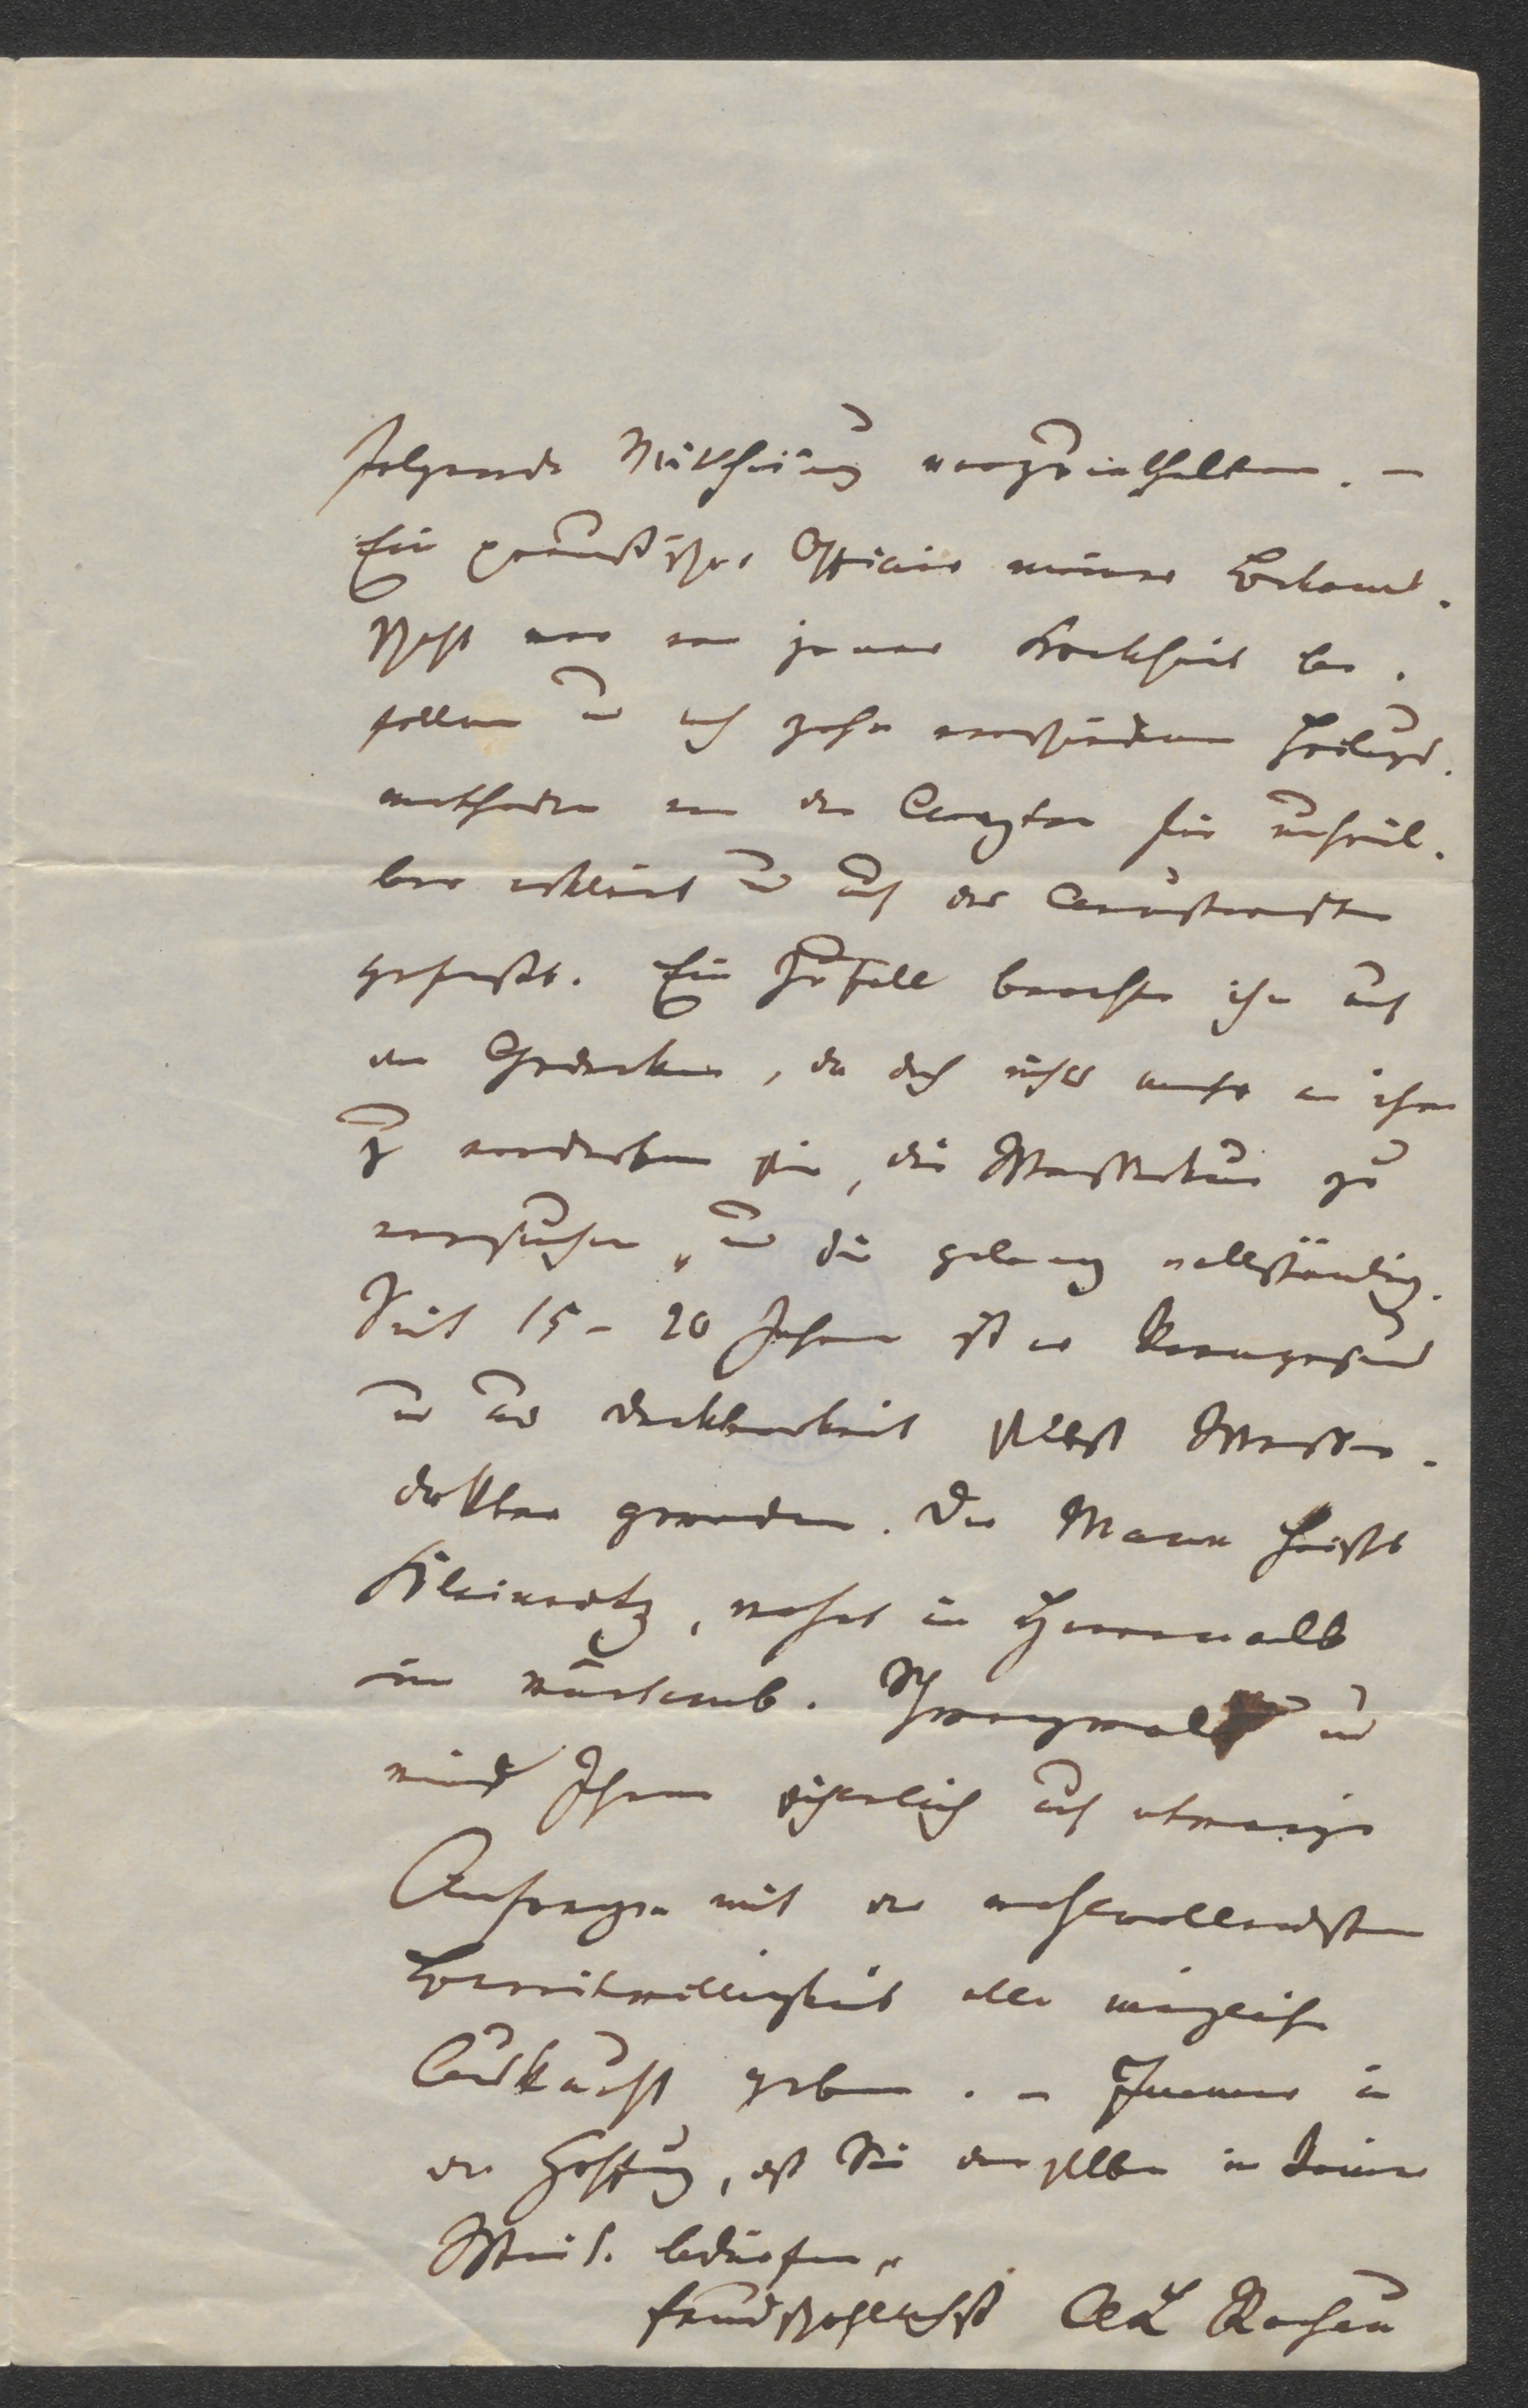 folgende Mittheilung vorzuenthalten. –
Ein preußischer Officier meiner Bekannt-
schaft war von jener Krankheit be-
fallen u nach zehn verschiedenen Heilungs-
methoden von den Aerzten für unheil-
bar erklärt u auf das
gefaßt. Ein Zufall brachte ihn auf
den Gedanken, da doch nichts mehr an ihm
zu verderben sei, die Wasserkur zu
versuchen, u die gelang vollständig.
Seit 15 – 20 Jahren ist er kerngesund
u aus Dankbarkeit selbst Wasser-
doktor geworden. Der Mann heißt
, wohnt in Herrenalb
im würtemb. Schwarzwald u
wird Ihnen sicherlich auf etwaige
Anfragen mit der wohlwollendsten
Bereitwilligkeit alle mögliche
Auskunft geben. – Immer in
der Hoffnung, daß Sie derselben in keiner
Weise bedürfen,
freundschaftlichst AL Rochau